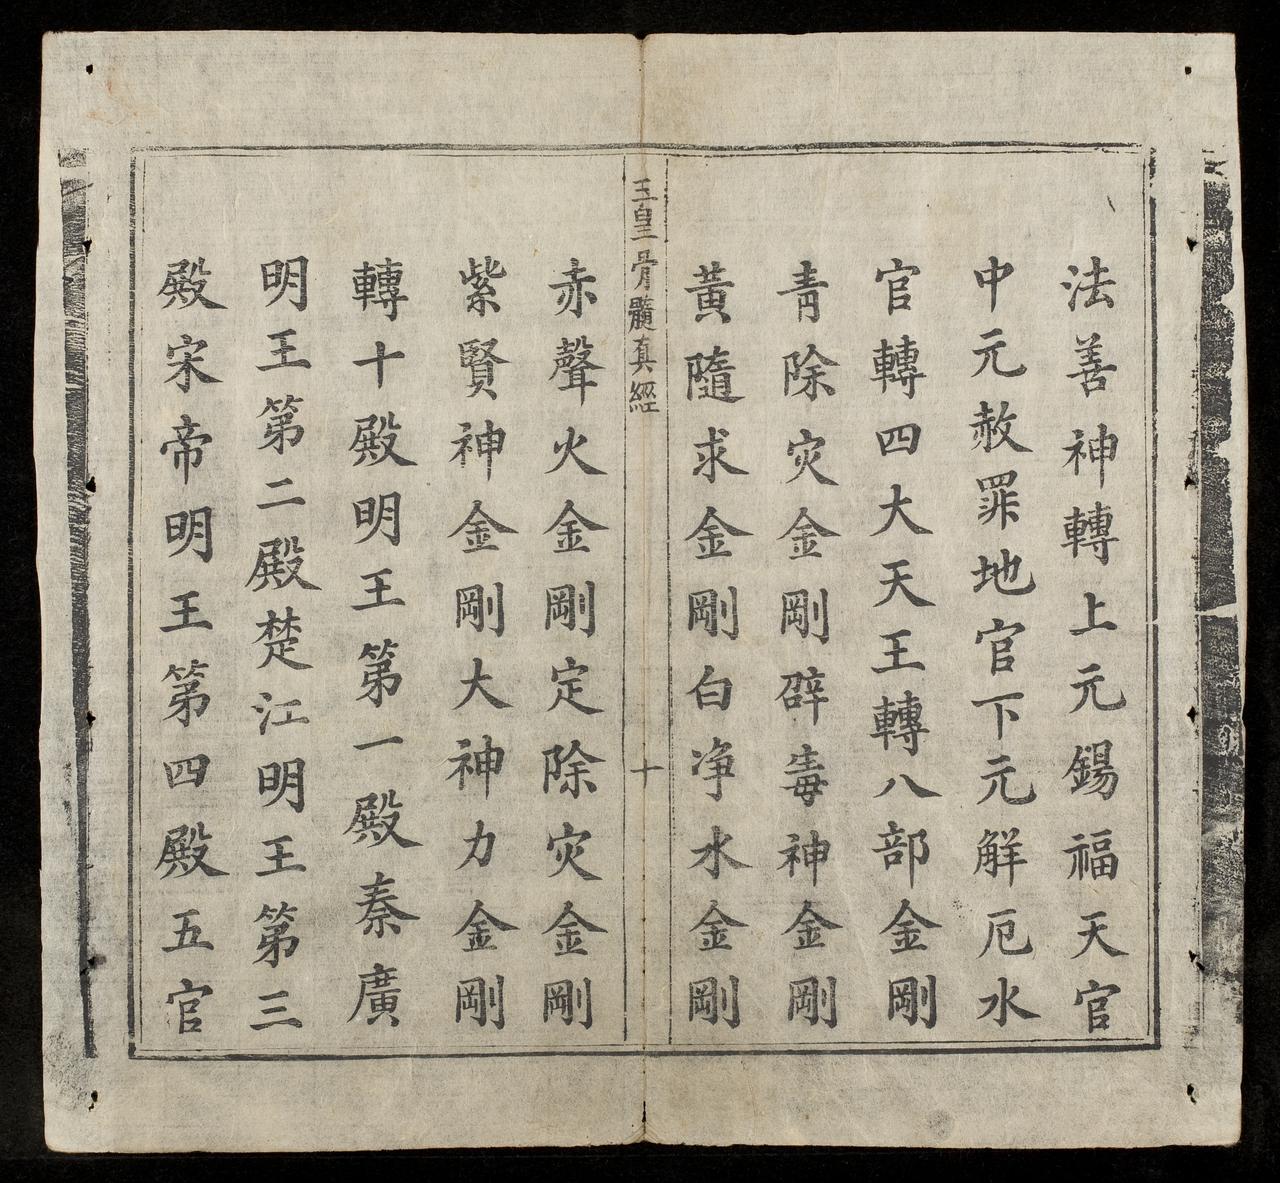 法善神轉上元錫福天官
中元赦罪地官下元解厄水
官轉四大天王轉八部金剛
青除灾金剛辟毒神金剛
黃隨求金剛白净水金剛
玉皇骨髓真經
十
赤聲火金剛定除灾金剛
紫賢神金剛大神力金剛
轉十殿明王第一殿秦廣
明王第二殿楚江明王第三
殿宋帝明王第四殿五官